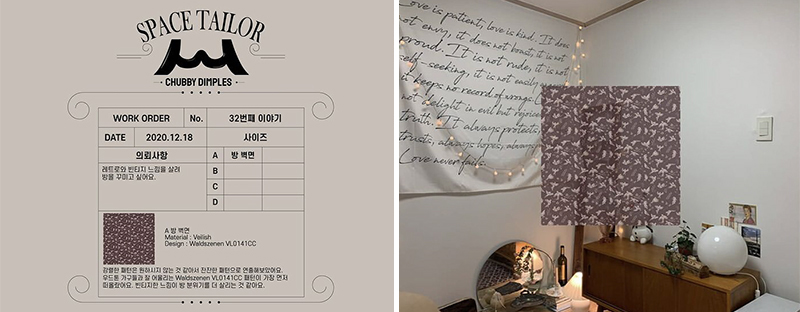 SPACE TAILOR
CHUBBY DIMPLES
WORK ORDER
No.
32번째 이야기
DATE
2020.12.18
사이즈
의뢰사항
A
방 벽면
레트로와 빈티지 느낌을 살려
방을 꾸미고 싶어요.
B
C
D
A 방 벽면
Material : Veilish
Design : Waldszenen VL0141CC
강렬한 패턴은 원하시지 않는 것 같아서 잔잔한 패턴으로 연출해보았어요.
우드톤 가구들과 잘 어울리는 Waldszenen VL0141CC 패턴이 가장 먼저
떠올랐어요. 빈티지한 느낌이 방 분위기를 더 살리는 것 같아요.
Love is patient, love is kind. It does
not envy, it does not boast, it is not
proud. It is not rude, it is not
self-seeking, it is not easily
it keeps no record of wrongs. L
not delight in evil but rejoice
truth. It always protects
trusts, always hopes, always
Love never fails.